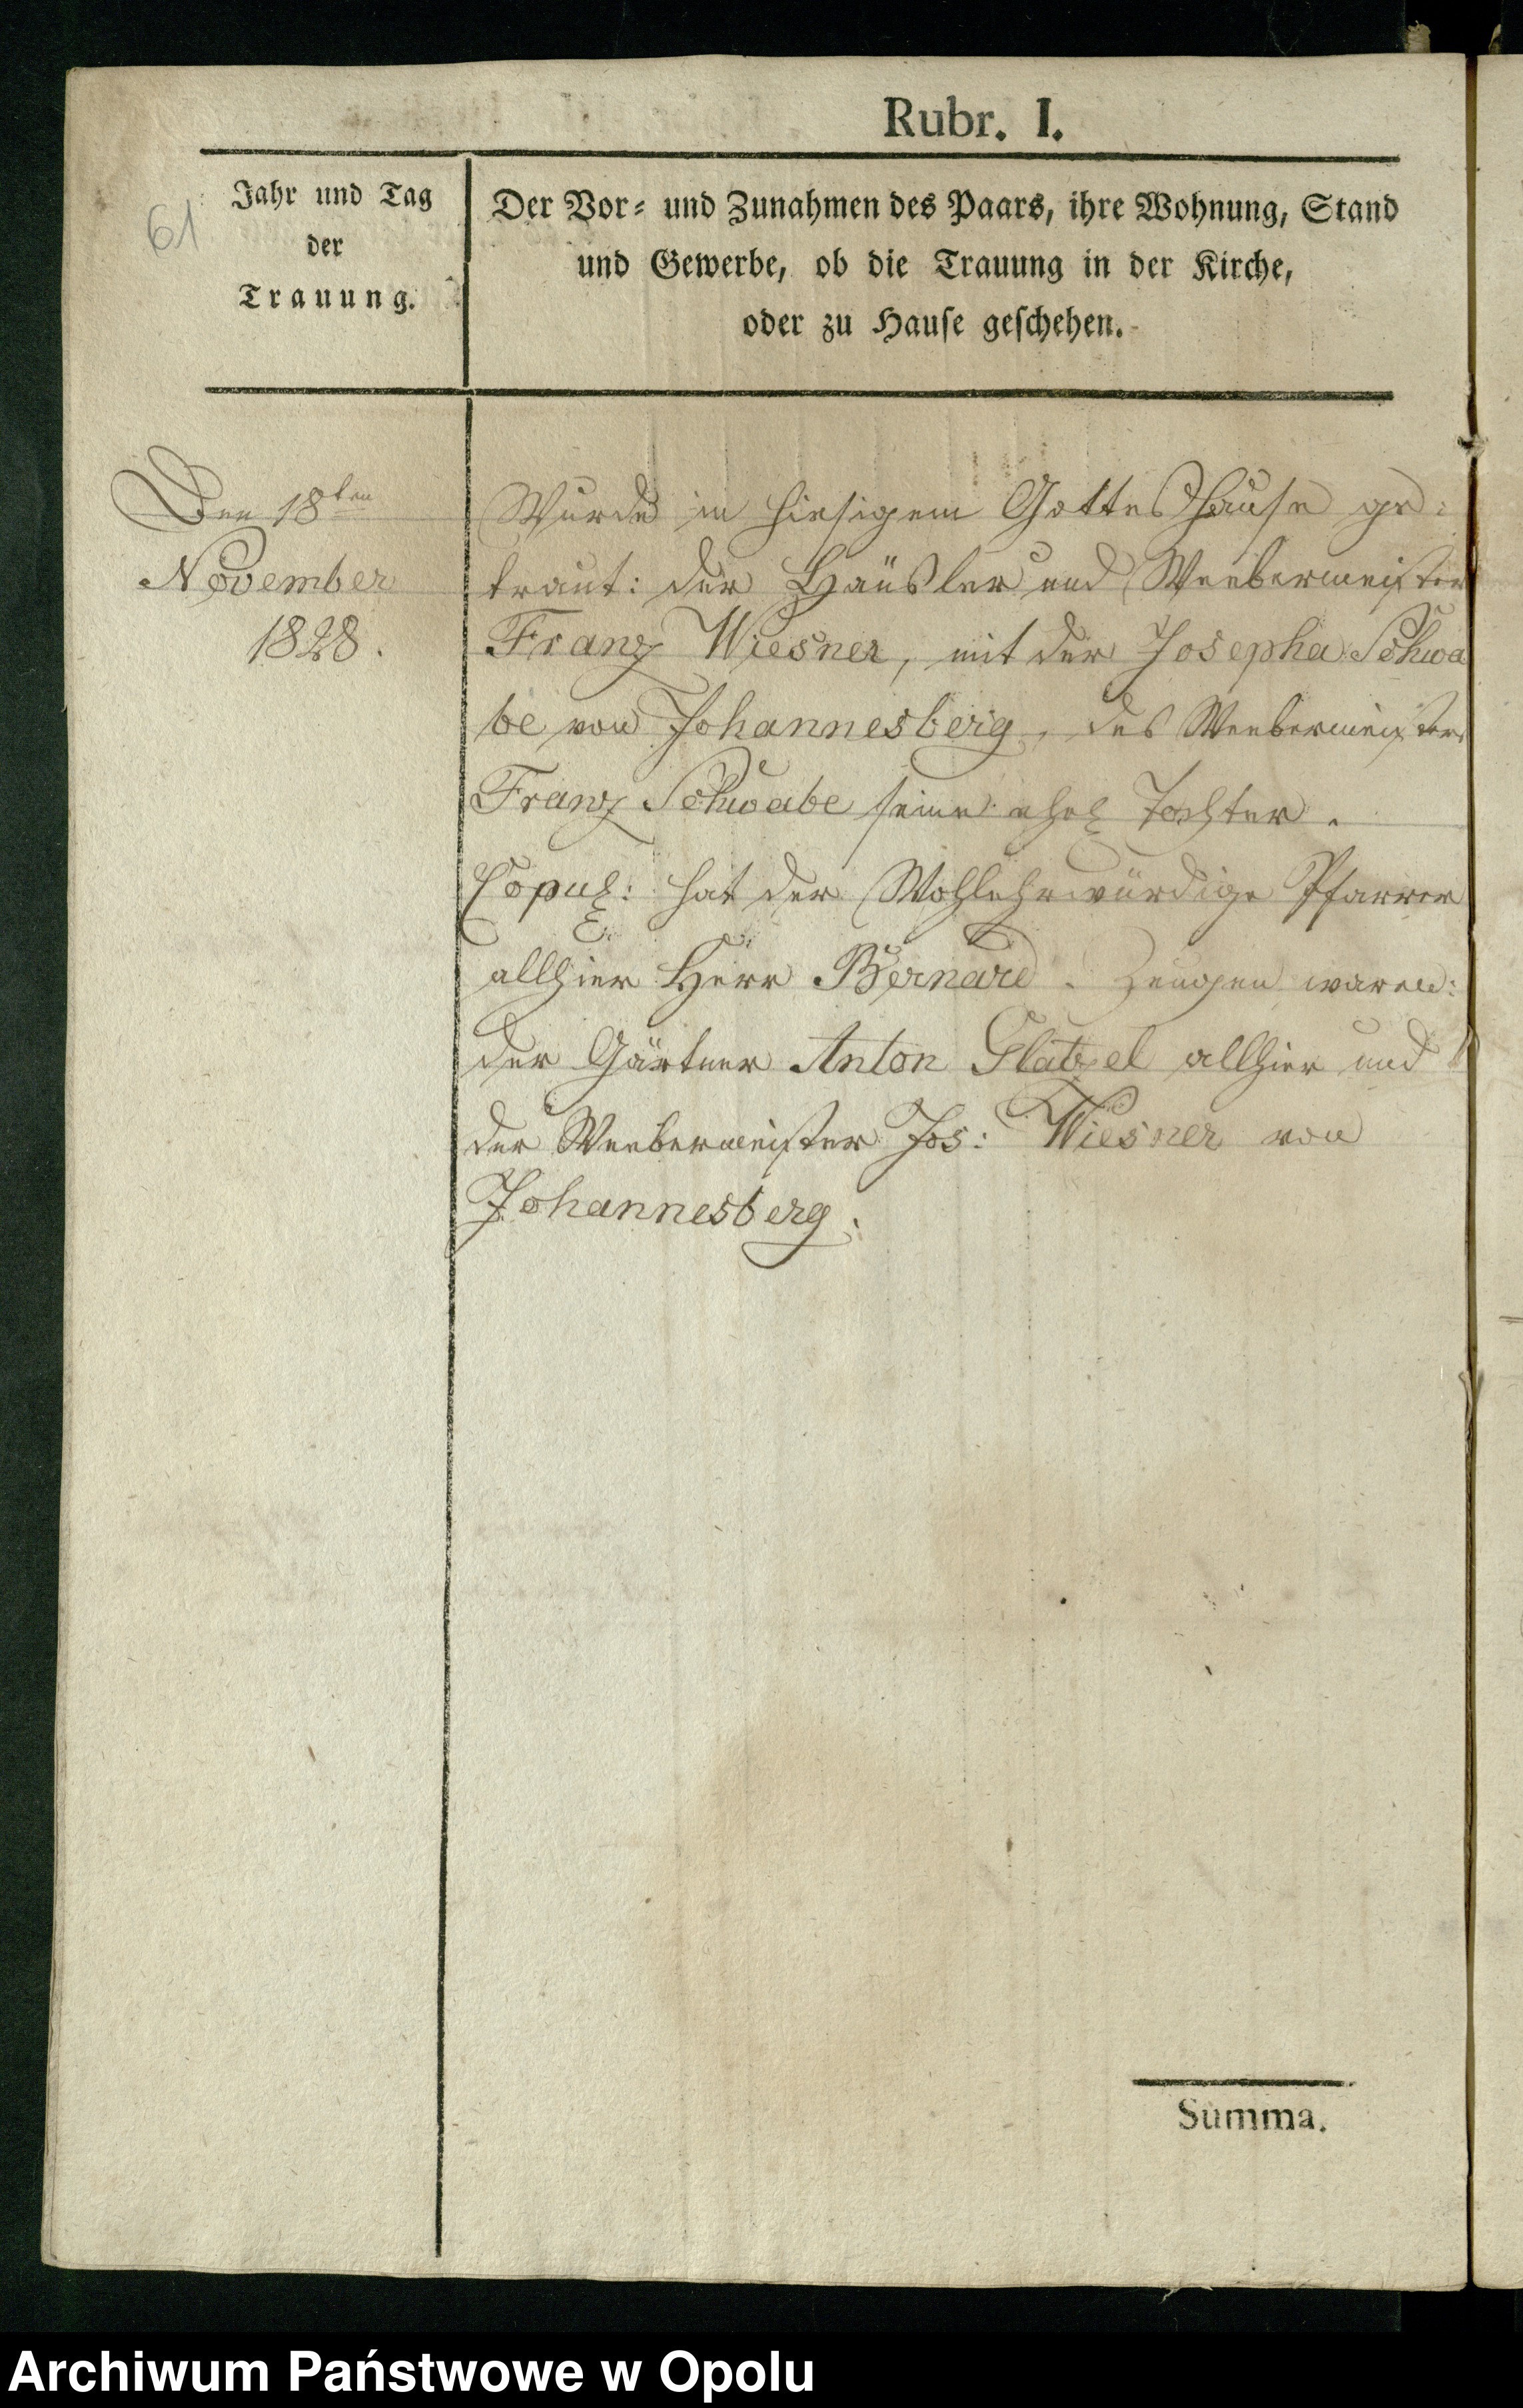 Rubr. I.
61
Jahr und Tag
der
Trauung.
Der Vor- und Zunahmen des Paars, ihre Wohnung, Stand
und Gewerbe, ob die Trauung in der Kirche,
oder zu Hause geschehen.
Den 18ten
November
1828.
Wurde in hiesigem Gotteshause ge-
traut: der Häusler und Weebermeister
Franz Wiesner, mit der Josepha Schwa
be von Johannesberg, des Weebermeisters
Franz Schwabe seine ehel Tochter.
Copul: hat der Wohlehrwürdige Pfarrer
allhier Herr Bernard. Zeugen waren:
der Gärtner Anton Glatzel allhier und
der Weebermeister Jos: Wiesner von
Johannesberg.
Summa.
Archiwum Państwowe w Opolu